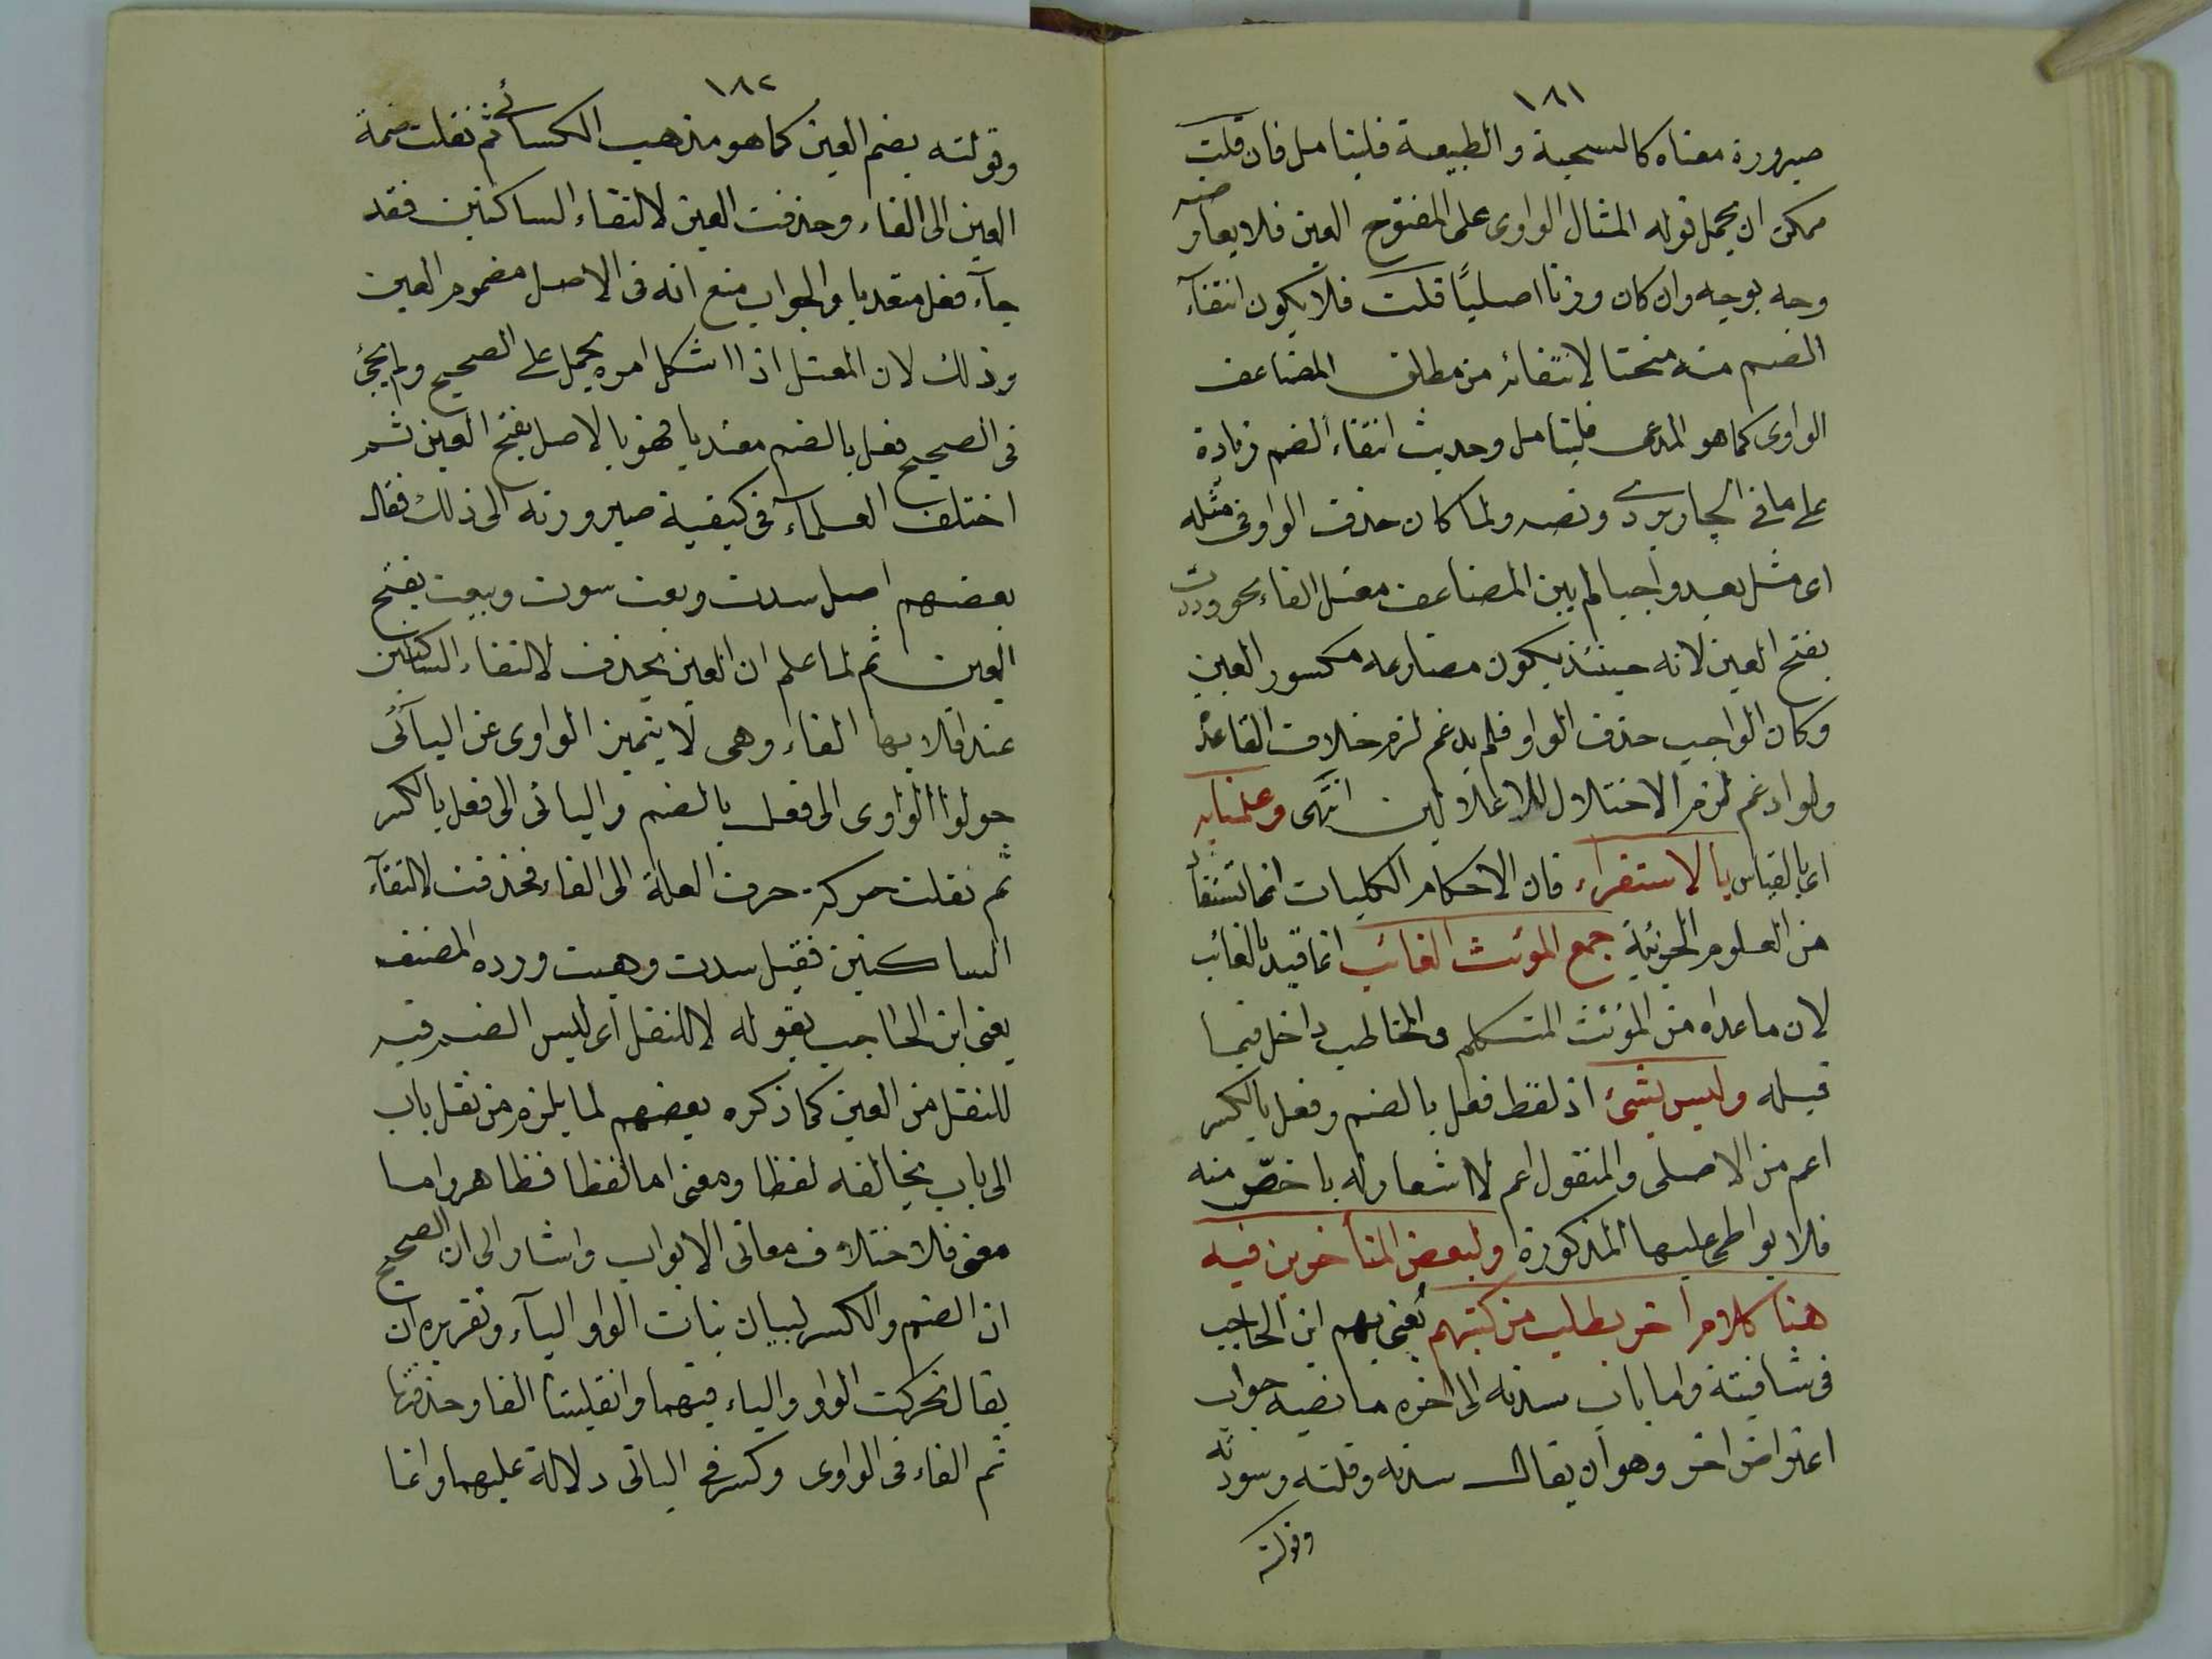 ١٨١
صيرورة معناه كالسجية والطبيعة فليتامل فان قلت
ممكن ان يحمل قوله المثال الواوى على المفتوح العين فلا يعارضه
وجه بوجه وان كان وزنا اصليًا قلت فلا يكون انتفآء
الضم منه منحتا لانتفائه من مطلق المضاعف
الواوى كما هو المدعى فليتامل وحديث انتفاء الضم زيادة
على ما فى الجاربردى ونصه ولما كان حذف الواو فى مثله
اى مثل يعد واجبا لم يبن المضاعف معتل الفاء نحو وددت
بفتح العين لانه حينئذ يكون مضارعه مكسور العين
وكان الواجب حذف الواو فلم يدغم لزم خلاف القاعدة
ولو ادغم لزم الاختلال للاعلالين انتهى وعلمنا به
اى بالقياس بالاستقراء فان الاحكام الكليات انما تستفاد
من العلوم الجزئية جمع المؤنث الغائب انما قيد بالغائب
لان ما عداه من المؤنث المتكلم والمخاطب داخل فيما
قبله وليس بشئ اذ لفظ فعل بالضم وفعل بالكسر
اعم من الاصلى والمنقول اعم لا اشعار له باخصّ منه
فلا يواطى عليها المذكورة ولبعض المتأخرين فيه
هنا كلام اخر يطلب من كتبهم يعنى بهم ابن الحاجب
فى شافيته واما باب سدته الى اخره ما نصه جواب
اعتراض اخر وهو ان يقال سدته وقلته وسودته
وقولته
١٨٢
وقولته بضم العين كما هو مذهب الكسائى ثم نقلت ضمة
العين الى الفاء وحذفت العين لالتقاء الساكنين فقد
جآء فعل متعديا والجواب منع انه فى الاصل مضموم العين
وذلك لان المعتل اذا اشكل امره يحمل على الصحيح ولم يجئ
فى الصحيح فعل بالضم معتديا فهو بالاصل بفتح العين ثم
اختلف العلمآء فى كيفية صيرورته الى ذلك فقال
بعضهم اصل سدت وبعت سوت وبيعت بفتح
العين ثم لما علم ان العين يحذف لالتقاء الساكنين
عند اقلابها الفاء وهى لا يتميز الواوى عن اليآئى
حولوا الواوى الى فعل بالضم واليائى الى فعل بالكسر
ثم نقلت حركة حرف العلة الى الفاء فحذفت لالتقآء
الساكنين فقيل سدت وهبت ورده المصنف
يعنى ابن الحاجب بقوله لا للنقل اى ليس الضم فيه
للنقل من العين كما ذكره بعضهم لما يلزم من نقل باب
الى باب يخالفه لفظا ومعنى اما لفظا فظاهر واما
معنى فلاختلاف معانى الابواب واشار الى ان الصحيح
ان الضم والكسر لبيان بنات الواو واليآء وتقريره ان
يقال تحركت الواو والياء فيهما وانقلبتا الفا وحذفتا
ثم الفاء فى الواوى وكسر فى اليائى دلالة عليهما وانما